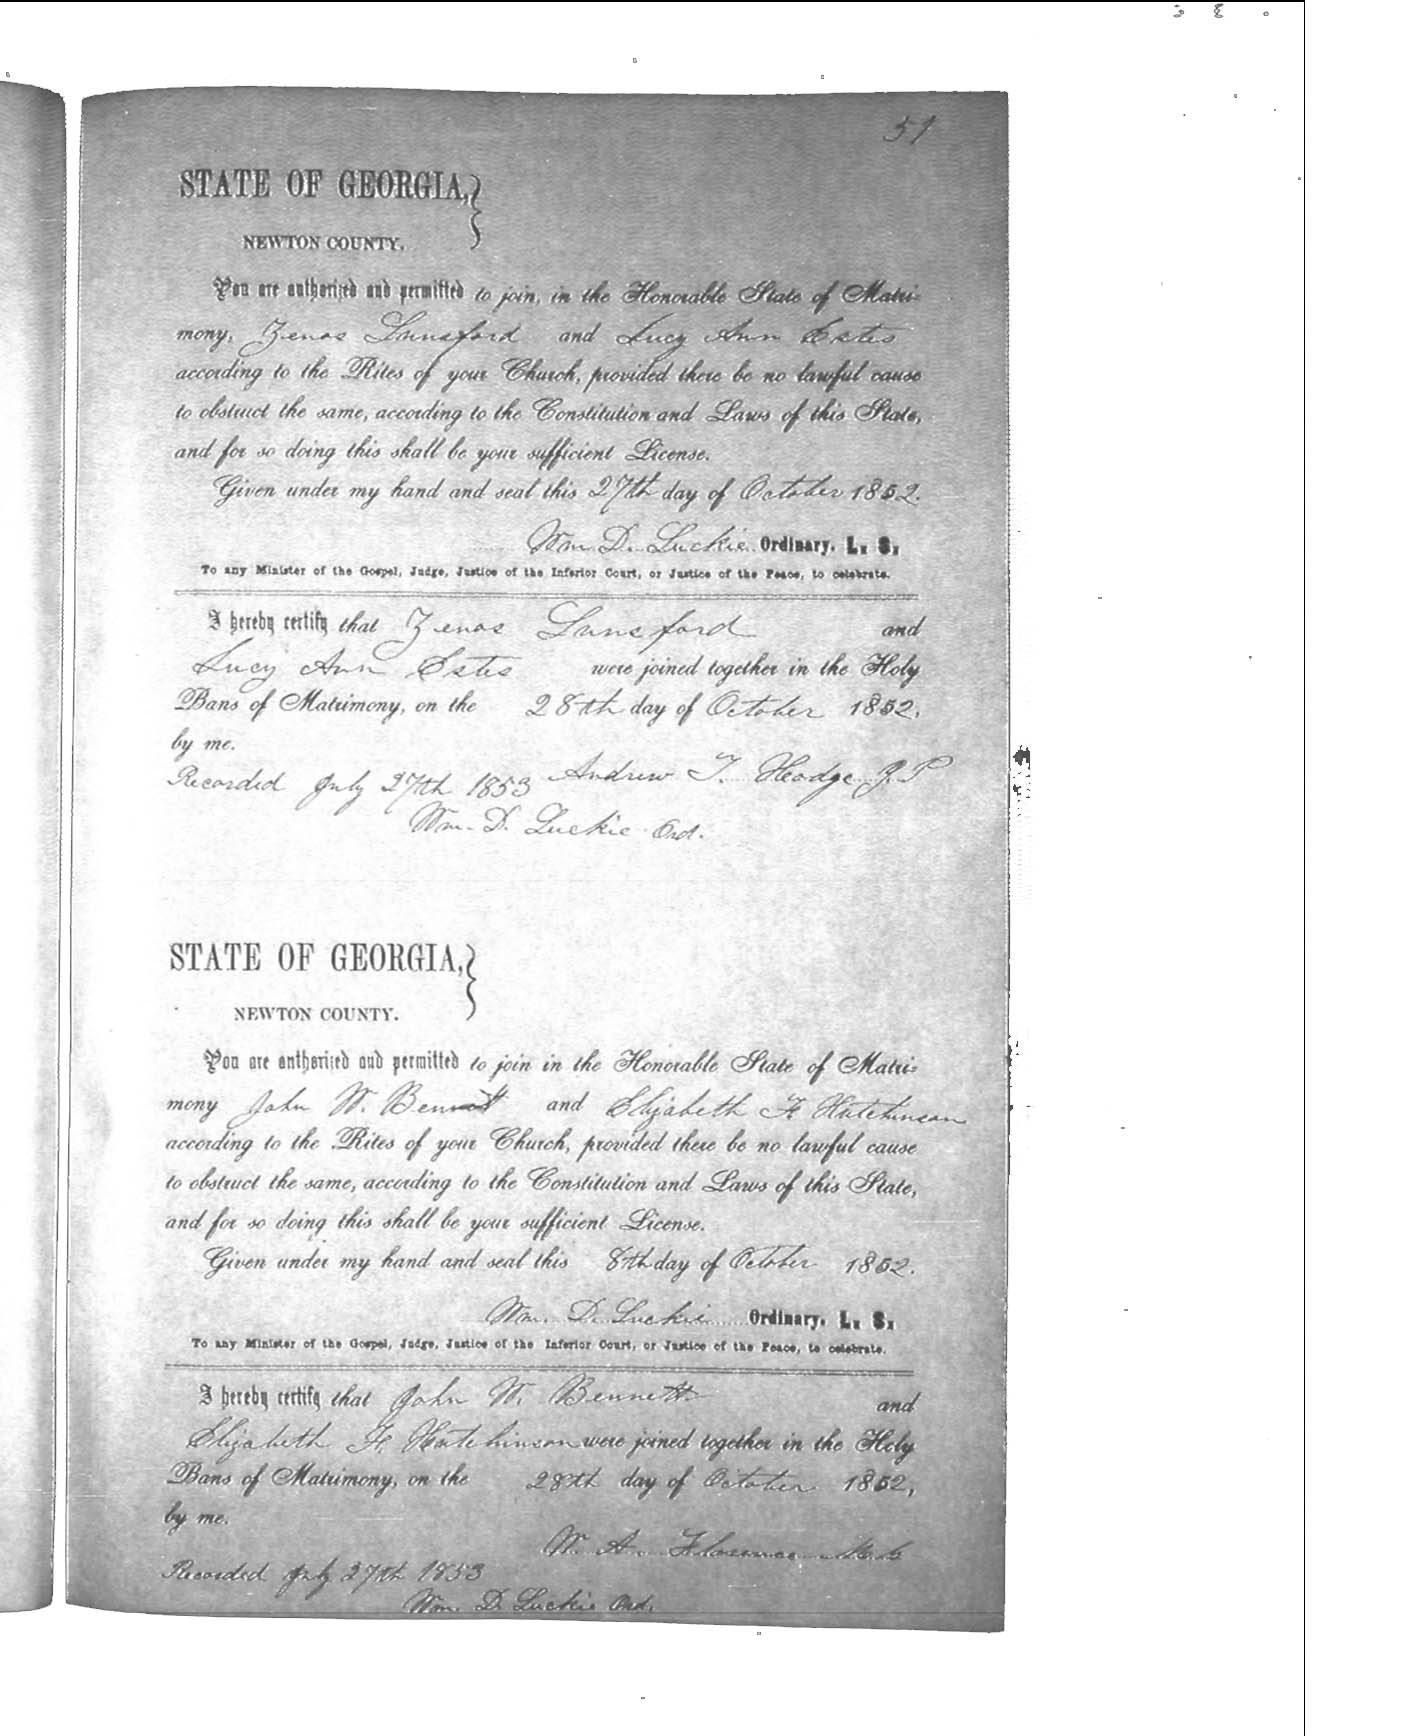 51
STATE OF GEORGIA,
NEWTON COUNTY.
You are authorized and permitted to join, in the Honorable State of Matri-
mony, Zenas Lunsford and Lucy Ann Estes
according to the Rites of your Church, provided there be no lawful cause
to obstruct the same, according to the Constitution and Laws of this State,
and for so doing this shall be your sufficient License.
Given under my hand and seal this 27th day of October 1852.
Wm. D. Luckie Ordinary. L. S.
To any Minister of the Gospel, Judge, Justice of the Inferior Court, or Justice of the Peace, to celebrate.
I hereby certify that Zenas Lunsford and
Lucy Ann Estes were joined together in the Holy
Bans of Matrimony, on the 28th day of October 1852,
by me.
Andrew T. Hodge J. P
Recorded July 27th 1853
Wm. D. Luckie Ord.
STATE OF GEORGIA,
NEWTON COUNTY.
You are authorized and permitted to join in the Honorable State of Matri-
mony John W. Bennett and Elizabeth F. Hutchinson
according to the Rites of your Church, provided there be no lawful cause
to obstruct the same, according to the Constitution and Laws of this State,
and for so doing this shall be your sufficient License.
Given under my hand and seal this 8th day of October 1852.
Wm. D. Luckie Ordinary. L. S.
To any Minister of the Gospel, Judge, Justice of the Inferior Court, or Justice of the Peace, to celebrate.
I hereby certify that John W. Bennett and
Elizabeth F. Hutchinson were joined together in the Holy
Bans of Matrimony, on the 28th day of October 1852,
by me.
W. A. Florence M. G
Recorded July 27th 1853
Wm. D. Luckie Ord.